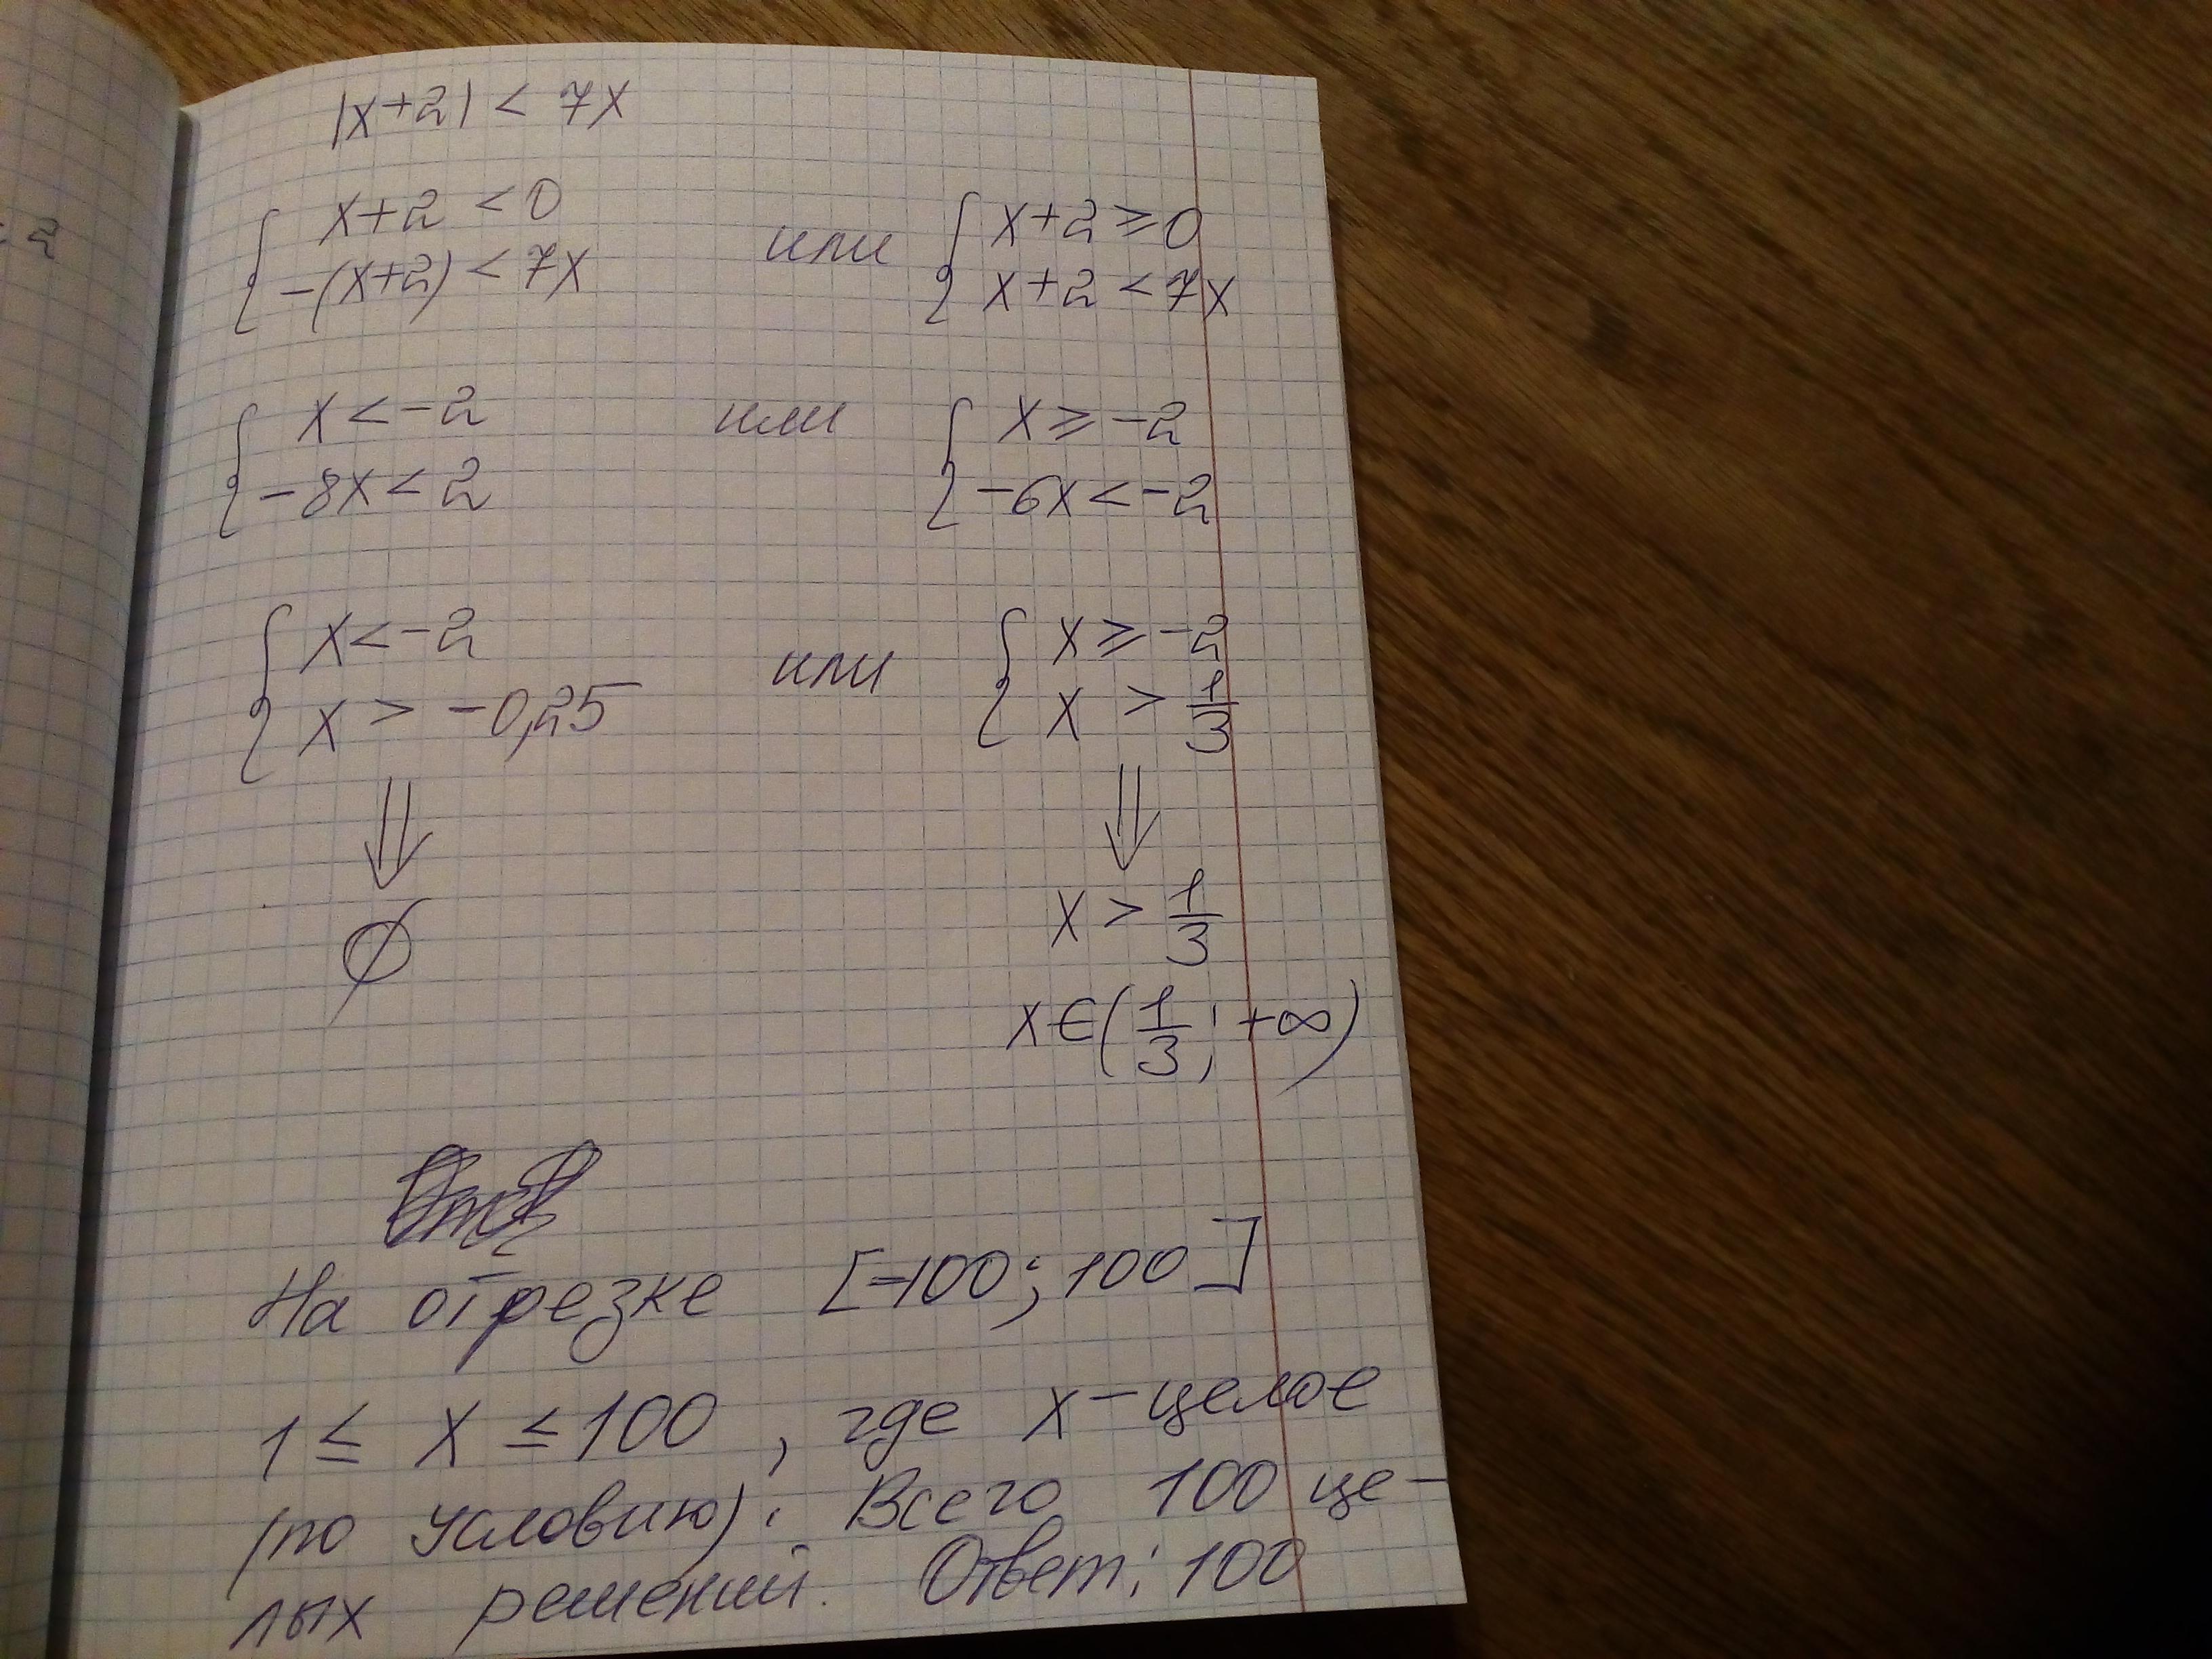 |x+2| < 7x
{ x+2 < 0 или { x+2 ≥ 0
-(x+2) < 7x x+2 < 7x
{ x < -2 или { x ≥ -2
-8x < 2 -6x < -2
{ x < -2 или { x ≥ -2
x > -0,25 x > 1/3
⇓ ⇓
∅ x > 1/3
x ∈ (1/3; +∞)
На отрезке [-100; 100]
1 ≤ x ≤ 100, где x - целое
(по условию). Всего 100 це-
лых решений. Ответ: 100